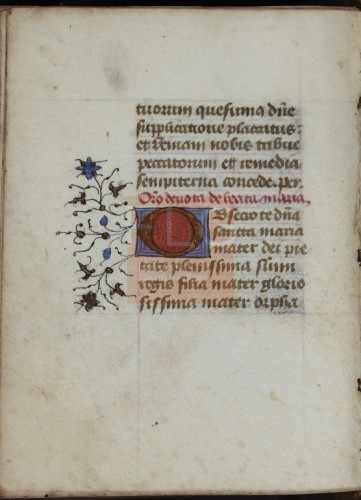 tuorum quesumus dñe
supplicatione placatus:
et veniam nobis tribue
peccatorum et remedia
sempiterna concede. per.
Oro deuota de beata maria.
Obsecro te dña
sancta maria
mater dei pie
tate plenissima sum̃i
regis filia mater glorio
sissima mater orpha